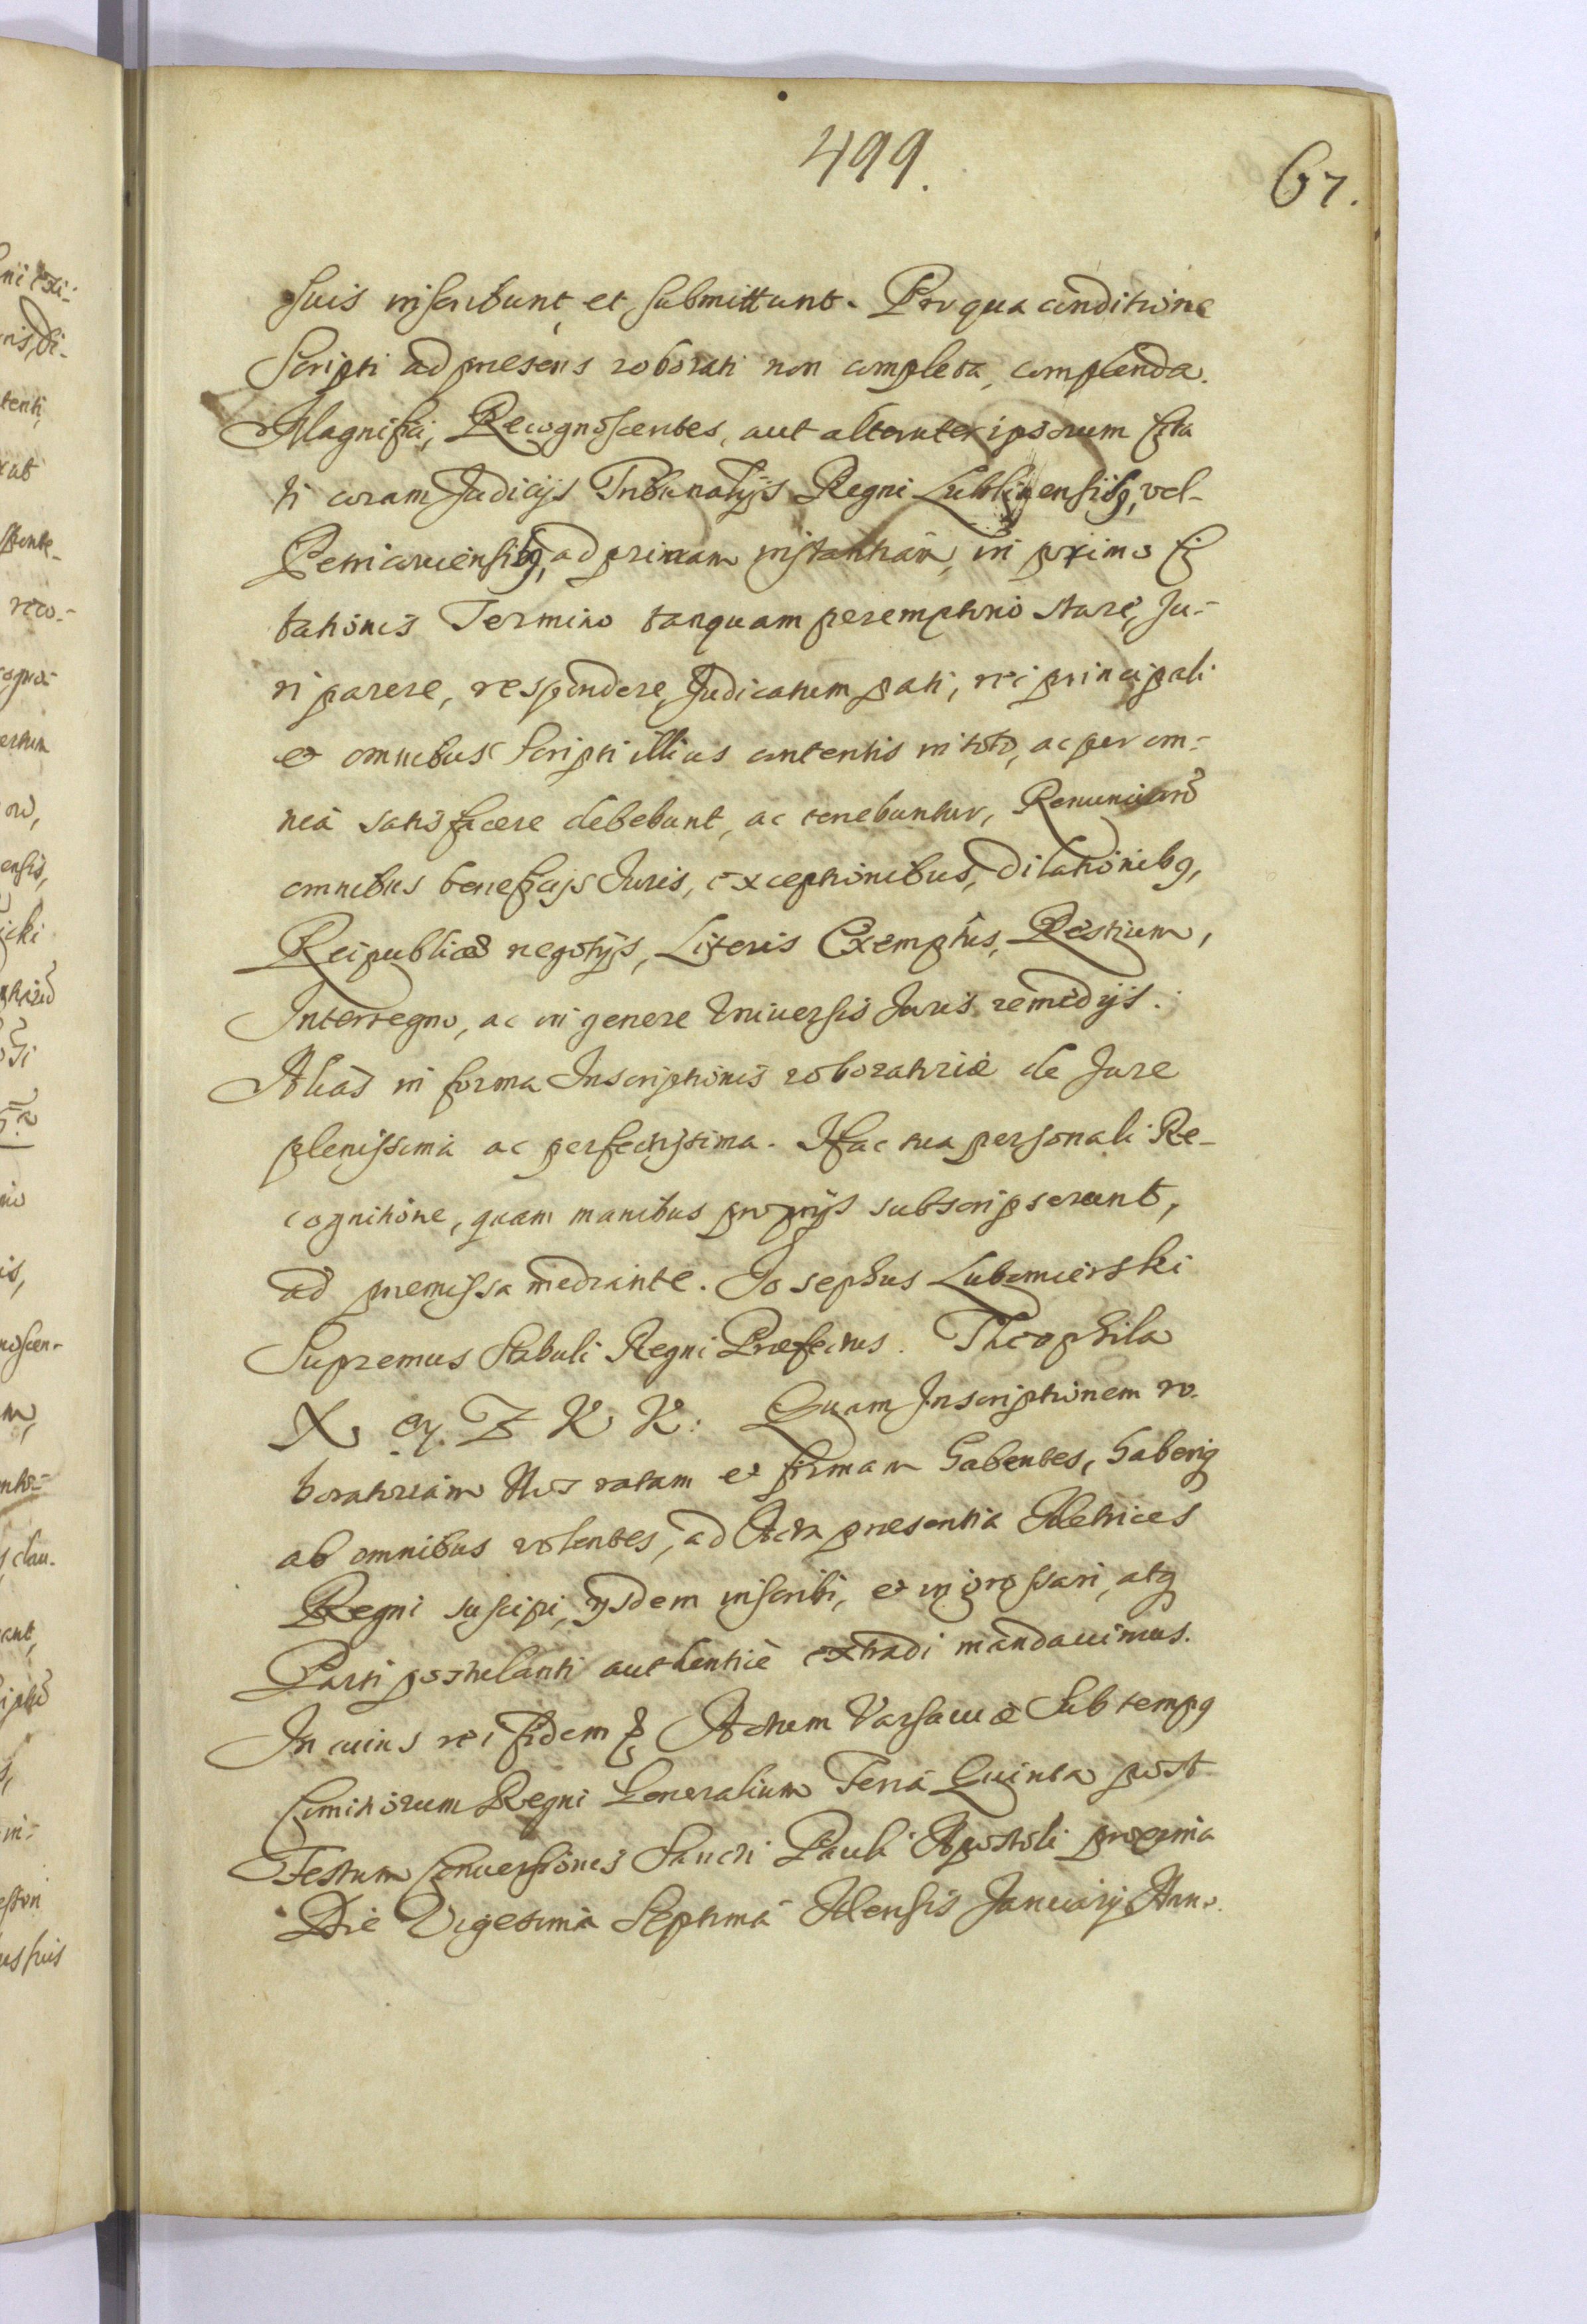 499.
67.
suis inscribunt et submittunt. Pro qua conditione
Scripti ad præsens roborati non completa, complenda.
Magnifici, Recognoscentes, aut alteruter ipsorum Cita
ti coram Judicijs Tribunalijs Regni Lublinensibq, vel
Petricouiensibq, ad primam instantiam, in proximo Ci
tationis Termino tanquam peremptorio stare, Ju-
ri parere, respondere, Judicatum pati, rei principali
et omnibus Scripti illius contentis in toto, ac per om-
nia satisfacere debebunt, ac tenebuntur, Renunciando
omnibus beneficijs Juris, exceptionibus, dilationibq,
Reipublicæ negotijs, Literis Exemptûs, Pestium,
Interregno, ac in genere Vniuersis Juris remedijs.
Aliàs in forma Inscriptionis roboratoriæ de Jure
plenissima ac perfectissima. Hac sua personali Re-
cognitione, quam manibus proprijs subscripserunt,
ad premissa mediante. Josephus Lubomierski
Supremus Stabuli Regni Præfectus. Theophila
X. Z K K: Quam Inscriptionem ro-
boratoriam Nos ratam et firmam habentes, haberiq
ab omnibus volentes, ad Acta præsentia Metrices
Regni suscipi, ijsdem inscribi, et ingrossari, atq
Parti postulanti authenticè extradi mandauimus.
In cuius rei fidem &. Actum Varsauiæ Sub tempq
Comitiorum Regni Generalium Feria Quinta post
Festum Conuersionis Sancti Pauli Apostoli proxima
Die Vigesima Septima Mensis January Anno.